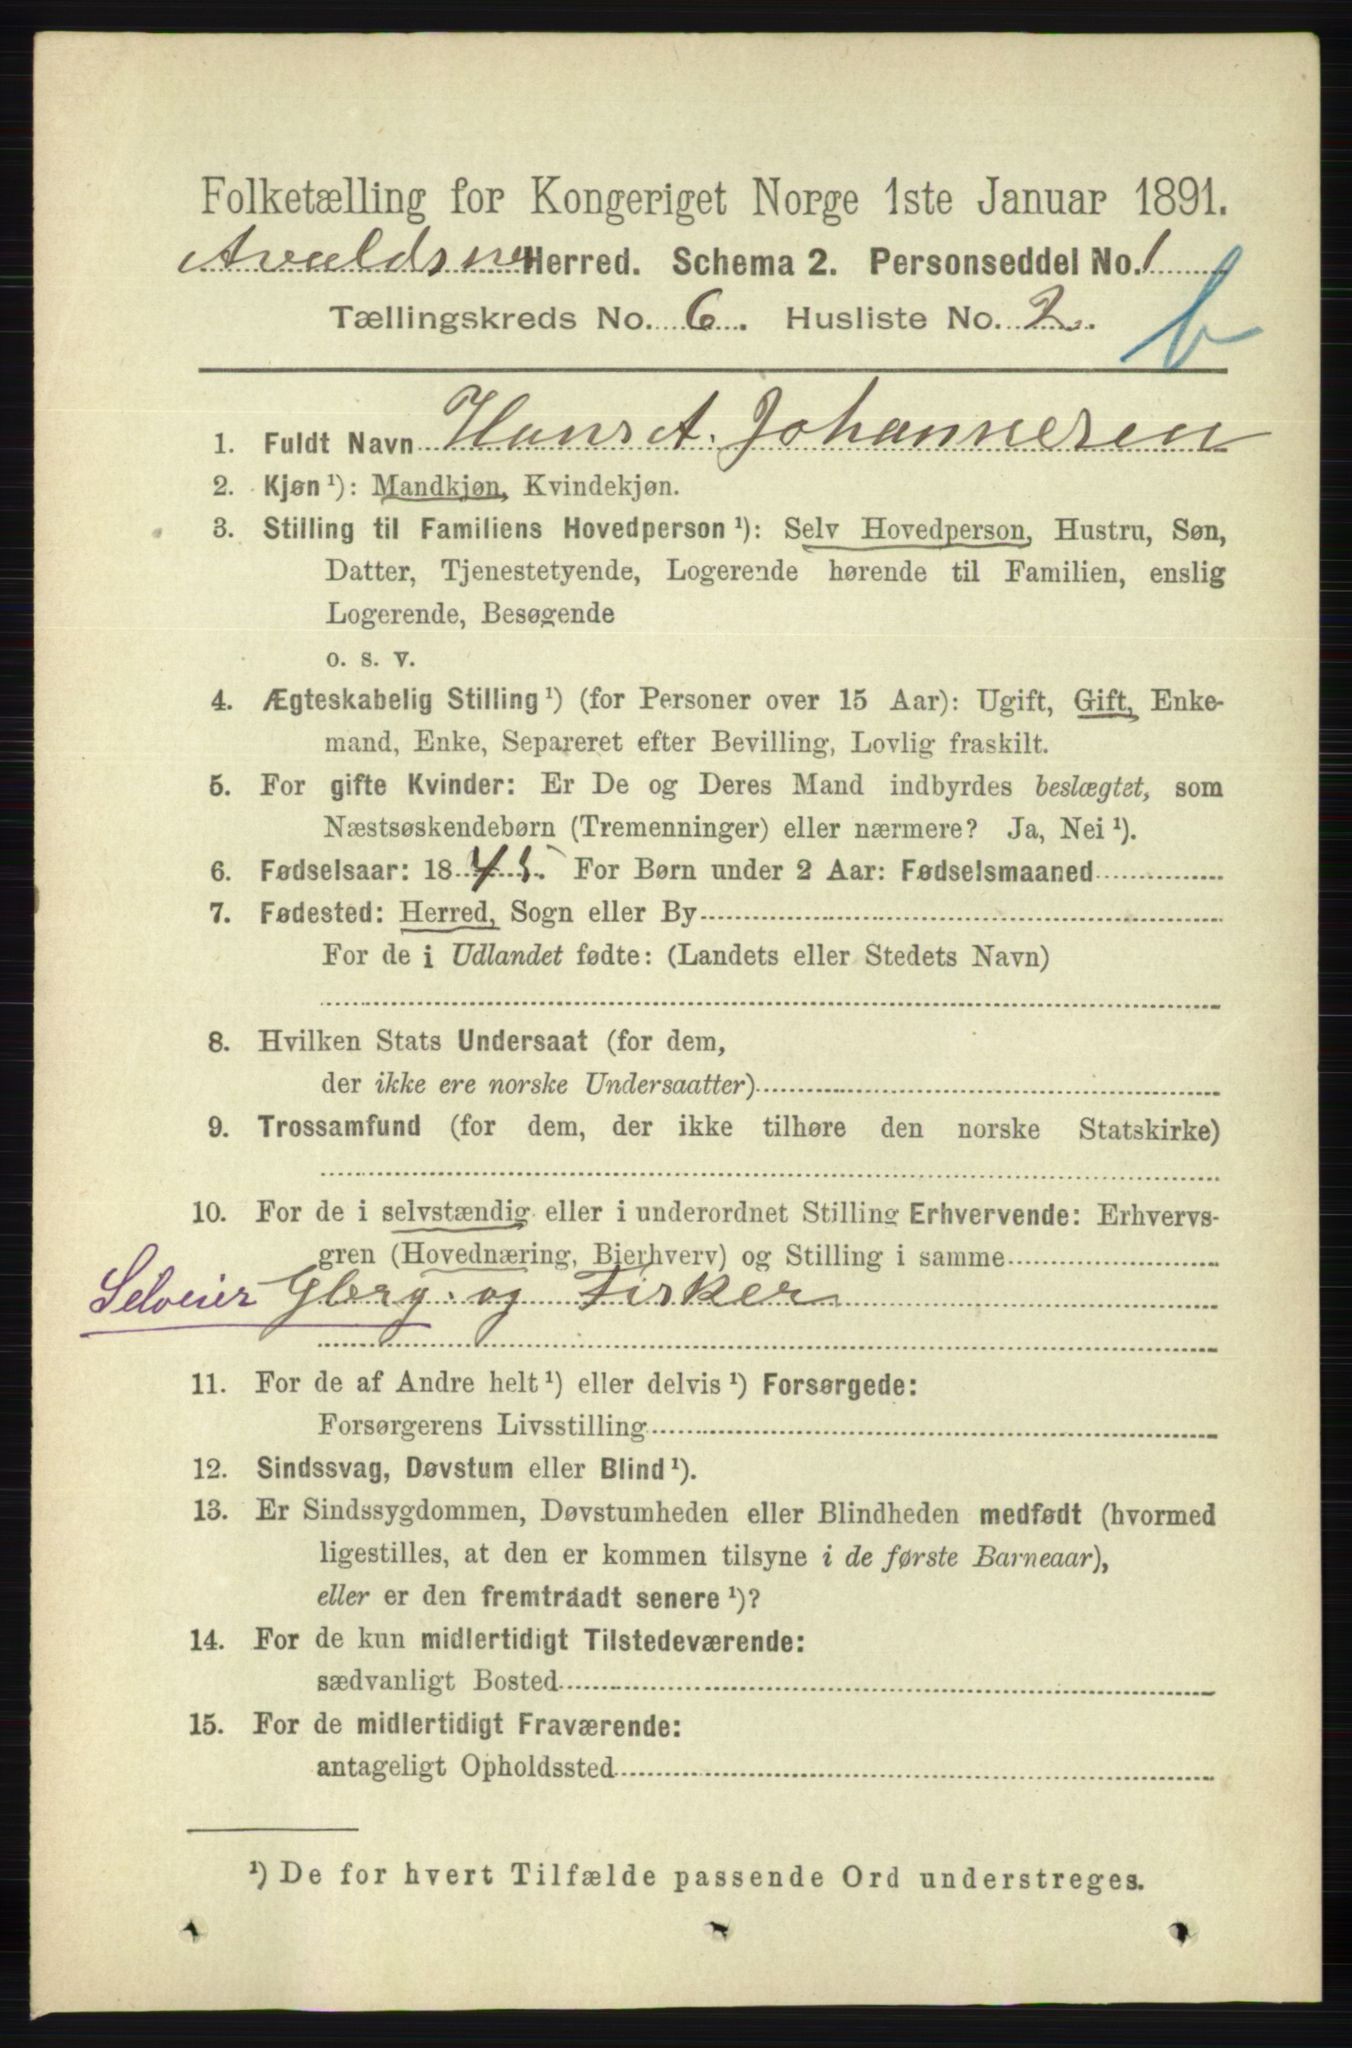 Folketælling for Kongeriget Norge 1ste Januar 1891.
Avaldsnes Herred. Schema 2. Personseddel No. 1
Tællingskreds No. 6. Husliste No. 2. b
1. Fuldt Navn Hans A. Johannesen
2. Kjøn ¹): Mandkjøn, Kvindekjøn.
3. Stilling til Familiens Hovedperson ¹): Selv Hovedperson, Hustru, Søn,
Datter, Tjenestetyende, Logerende hørende til Familien, enslig
Logerende, Besøgende
o. s. v.
4. Ægteskabelig Stilling ¹) (for Personer over 15 Aar): Ugift, Gift, Enke-
mand, Enke, Separeret efter Bevilling, Lovlig fraskilt.
5. For gifte Kvinder: Er De og Deres Mand indbyrdes beslægtet, som
Næstsøskendebørn (Tremenninger) eller nærmere? Ja, Nei ¹).
6. Fødselsaar: 1845. For Børn under 2 Aar: Fødselsmaaned
7. Fødested: Herred, Sogn eller By
For de i Udlandet fødte: (Landets eller Stedets Navn)
8. Hvilken Stats Undersaat (for dem,
der ikke ere norske Undersaatter)
9. Trossamfund (for dem, der ikke tilhøre den norske Statskirke)
10. For de i selvstændig eller i underordnet Stilling Erhvervende: Erhvervs-
gren (Hovednæring, Bierhverv) og Stilling i samme
Selveier Gbrg. og Fisker
11. For de af Andre helt ¹) eller delvis ¹) Forsørgede:
Forsørgerens Livsstilling
12. Sindssvag, Døvstum eller Blind ¹).
13. Er Sindssygdommen, Døvstumheden eller Blindheden medfødt (hvormed
ligestilles, at den er kommen tilsyne i de første Barneaar),
eller er den fremtraadt senere ¹)?
14. For de kun midlertidigt Tilstedeværende:
sædvanligt Bosted
15. For de midlertidigt Fraværende:
antageligt Opholdssted
¹) De for hvert Tilfælde passende Ord understreges.